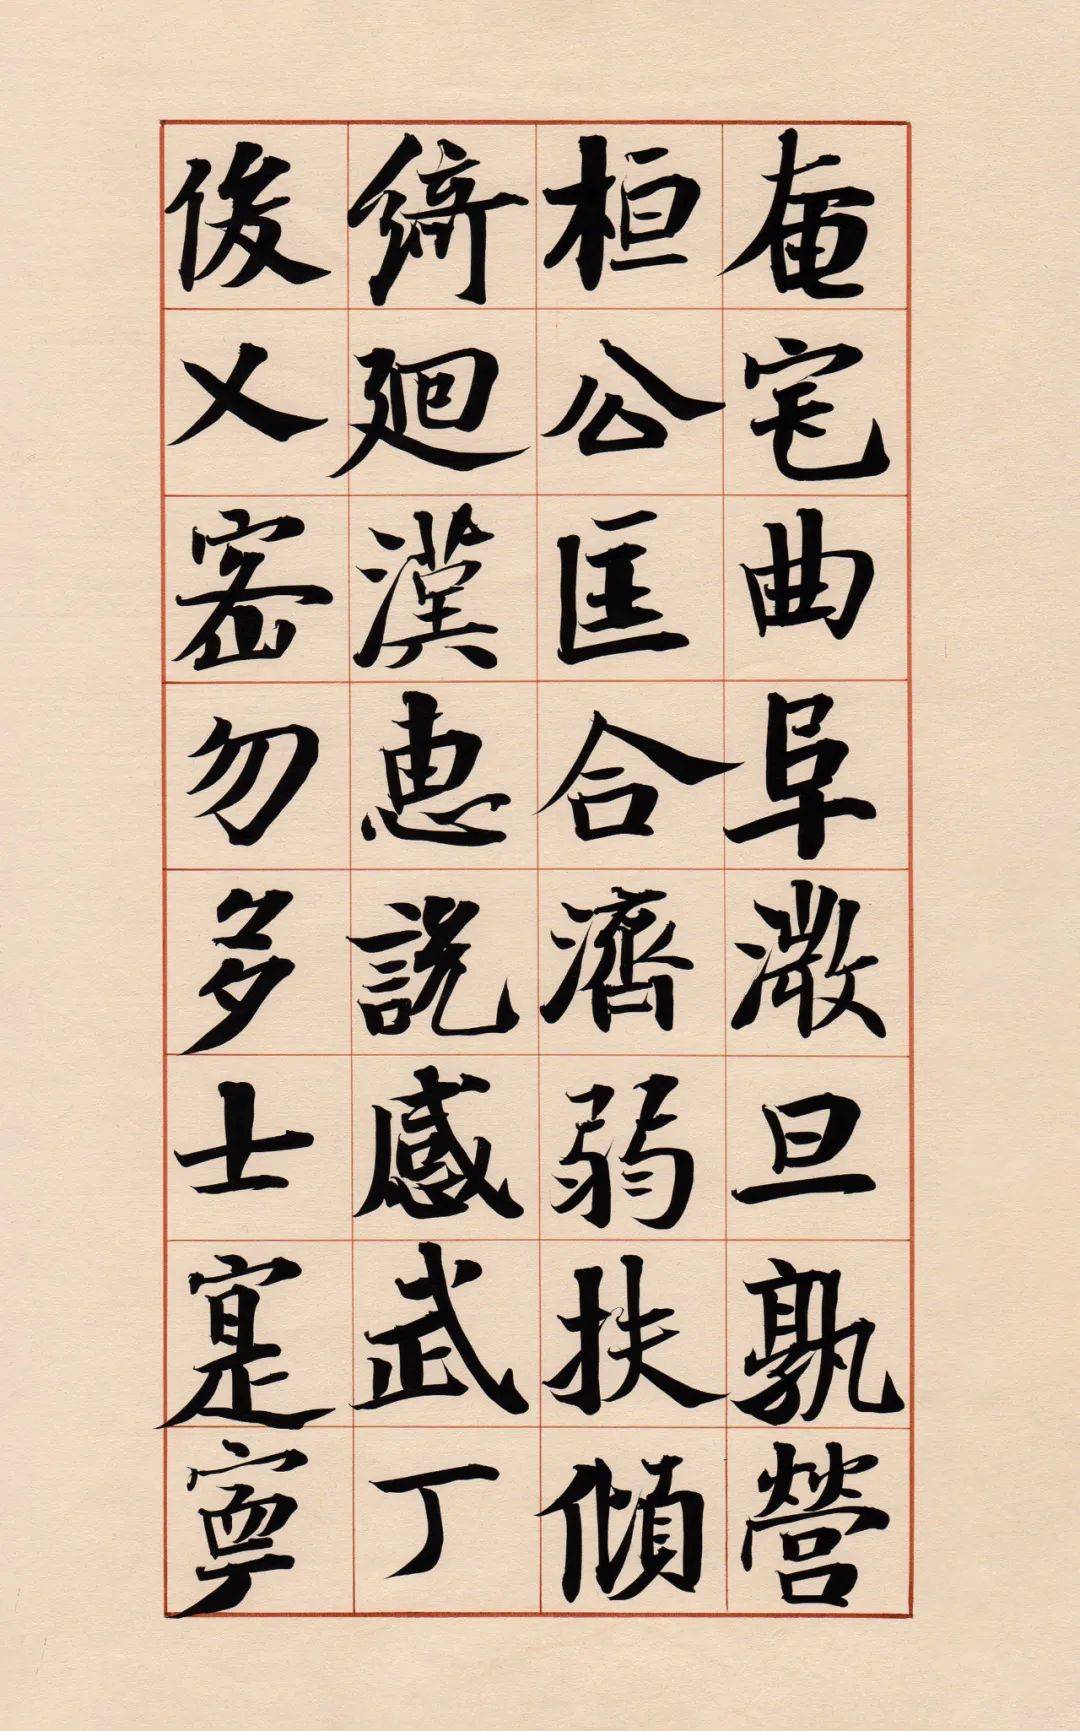 奄宅曲阜溦旦孰營
桓公匡合濟弱扶傾
綺迴漢惠説感武丁
俊乂密勿多士寔寧